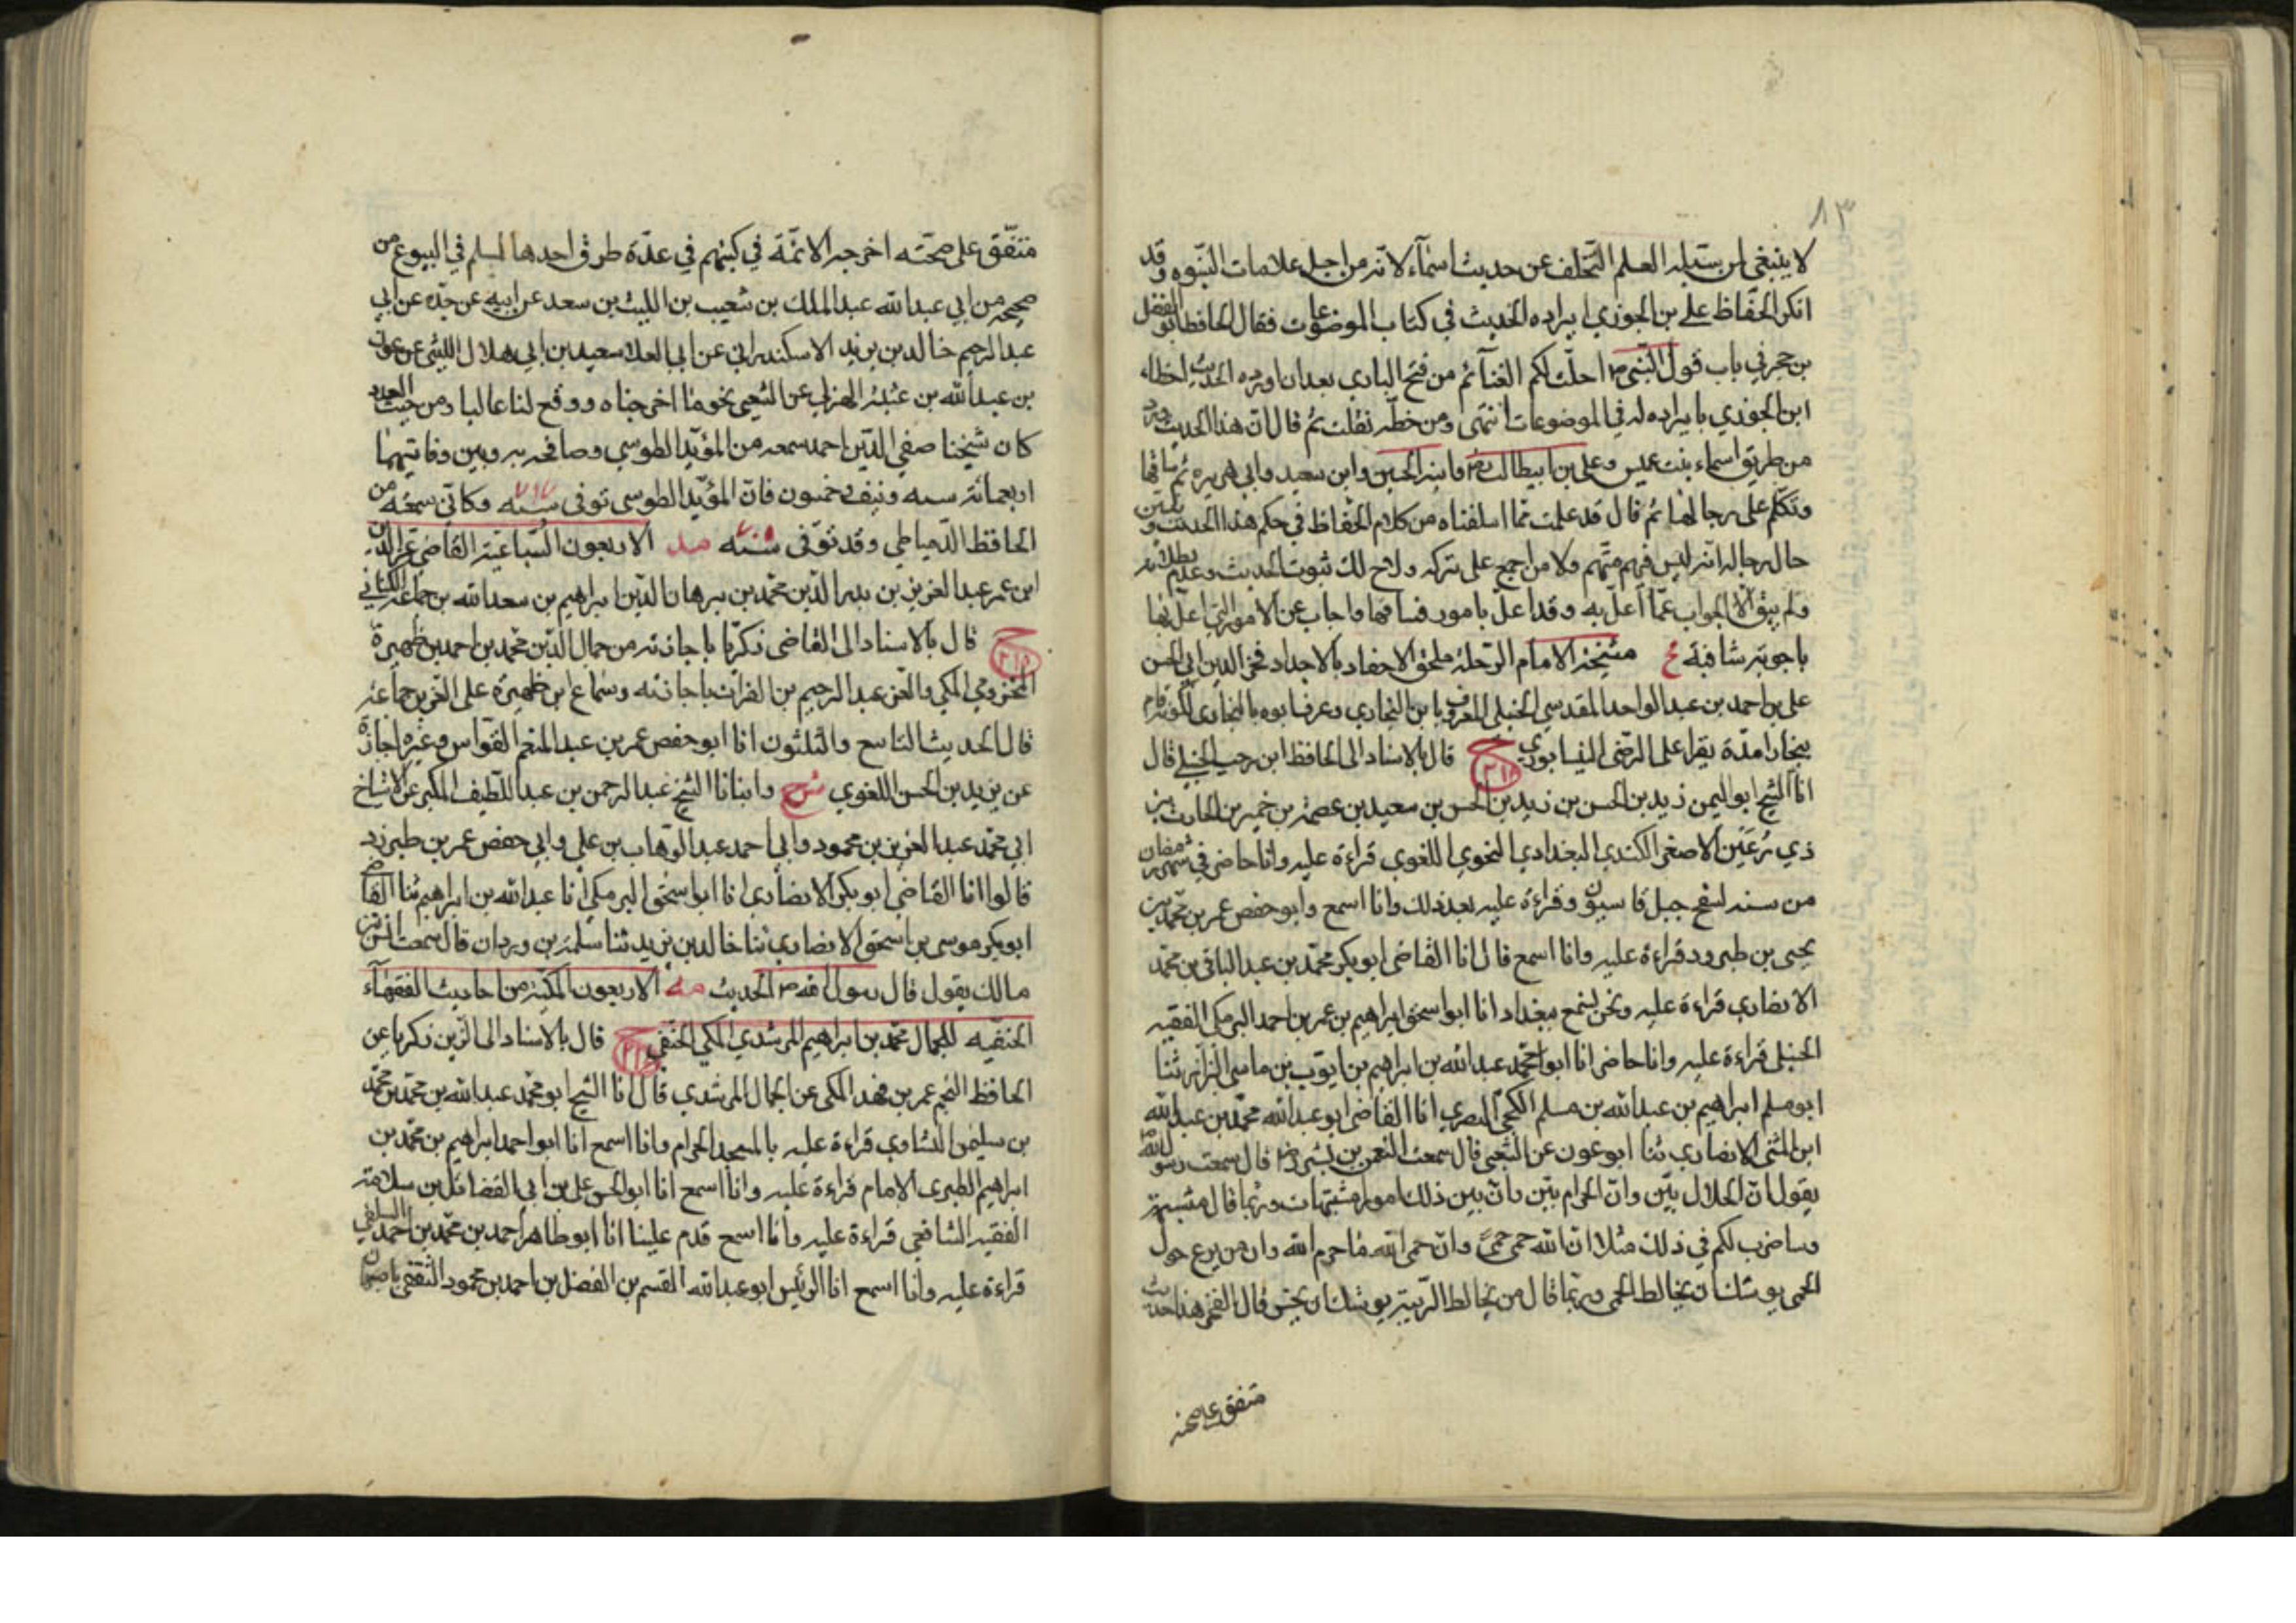 ٨٣
لا ينبغي لمن سبيله العلم التخلف عن حديث اسمآء لانه من اجل علامات النبوه وقد
انكر الحفاظ على بن الجوزي ايراده الحديث في كتاب الموضوعات فقال الحافظ ابو الفضل
بن حجر في باب قول النبي ص احلت لكم الغنآئم من فتح الباري بعد ان اورده الحديث اخطاء
ابن الجوزي بايراده له في الموضوعات انتهى ومن خطه نقلت ثم قال ان هذا الحديث ورد
من طريق اسماء بنت عميس وعلي بن ابيطالب وابنه الحسين وابي سعيد وابي هريره ثم ساقها
وتكلم على رجالها ثم قال قد علمت مما اسلفناه من كلام الحفاظ في حكم هذا الحديث وتبين
حال رجاله انه ليس فيهم متهم ولا من اجمع على تركه ولاح لك ثبوت الحديث وعدم بطلانه
ولم يبق الا الجواب عما اعل به وقد اعل بامور فساقها واجاب عن الامور التي اعل بها
باجوبة شافية ع مشيخة الامام الرحلة ملحق الاحفاد بالاجداد فخر الدين ابي الحسن
على بن احمد بن عبد الواحد المقدسي الحنبلي المعروف بابن البخاري وعرف ابوه بالبخاري لكونه اقام
ببخارا مدة يقرا على الرضى النيسابوري ح ٢١٨ قال بالاسناد الى الحافظ ابن رجب الحنبلي قال
انا الشيخ ابو اليمن زيد بن الحسن بن زيد بن الحسن بن سعيد بن عصمة بن حمير بن الحارث بن
ذي رعين الاصغر الكندي البغدادي النحوي اللغوي قراءة عليه وانا حاضر في شهر رمضان
من سنة لسفح جبل قاسيون وقراءة عليه بعد ذلك وانا اسمع وابو حفص عمر بن محمد بن
يحيى بن طبرود قراءة عليه وانا اسمع قال انا القاضي ابو بكر محمد بن عبد الباقي بن محمد
الانصاري قراءة عليه ونحن نسمع ببغداد انا ابو اسحق ابراهيم بن عمر بن احمد البرمكي الفقيه
الحنبلي قراءة عليه وانا حاضر انا ابو محمد عبد الله بن ابراهيم بن ايوب بن ماسي البزاز ثنا
ابو مسلم ابراهيم بن عبد الله بن مسلم الكجي البصري انا القاضي ابو عبد الله محمد بن عبد الله
ابن المثنى الانصاري ثنا ابو عون عن الشعبي قال سمعت النعمن بن بشير رض قال سمعت رسول الله ص
يقول ان الحلال بين وان الحرام بين وان بين ذلك امورا مشتبهات وربما قال مشتبهة
وساضرب لكم في ذلك مثلا ان الله حمى حمى وان حمى الله ما حرم الله وان من يرع حول
الحمى يوشك ان يخالط الحمى وربما قال من يخالط الريبة يوشك ان يجسر قال الفخر هذا حديث
متفق على صحته
متفق على صحته اخرجه الائمة في كتبهم في عدة طرق احدها لمسلم في البيوع من
صحيحه من ابي عبد الله عبد الملك بن شعيب بن الليث بن سعد عن ابيه عن جده عن ابي
عبد الرحيم خالد بن يزيد الاسكندراني عن ابي العلا سعيد بن ابي هلال الليثي عن عون
بن عبد الله بن عتبة الهزلي عن الشعبي بنحو ما اخرجناه ووقع لنا عاليا ومن حيث العدد
كان شيخنا صفي الدين احمد سمعه من المؤيد الطوسي وصافحه به وبين وفاتيهما
اربعمائة سنه ونيف وخمسون فان المؤيد الطوسي توفى سنه ٦١٧ وكاني سمعته من
الحافظ الدمياطي وقد توفى سنه ٧٠٥ مد الاربعون التساعية القاضي عز الدين
ابن عمر عبد العزيز بن بدر الدين محمد بن برهان الدين ابراهيم بن سعد الله بن جماعة الكناني
ح ٢١٨ قال بالاسناد الى القاضي زكريا باجازته من جمال الدين محمد بن احمد بن ظهيرة
المخزومي المكي والعز عبد الرحيم بن الفرات باجازته وسماع ابن ظهيرة على العز بن جماعة
قال الحديث التاسع والثلثون انا ابو حفص عمر بن عبد المنعم القواس وغيره اجازة
عن يزيد بن الحسن اللغوي ح وانبانا الشيخ عبد الرحمن بن عبد اللطيف المكبر عن الاشياخ
ابي محمد عبد العزيز بن محمود وابي احمد عبد الوهاب بن علي وابي حفص عمر بن طبرزد
قالوا انا القاضي ابو بكر الانصاري انا ابو اسحق البرمكي انا عبد الله بن ابراهيم ثنا القاضي
ابو بكر موسى بن اسحق الانصاري ثنا خالد بن يزيد ثنا سلمة بن وردان قال سمعت انس بن
مالك يقول قال رسول الله ص الحديث مه الاربعون المكية من احاديث الفقهآء
الحنفيه للجمال محمد بن ابراهيم المرشدي المكي الحنفي ح قال بالاسناد الى الزين زكريا عن
الحافظ النجم عمر بن فهد المكي عن الجمال المرشدي قال انا الشيخ ابو محمد عبد الله بن محمد بن محمد
بن سليمن النشاوري قراءة عليه بالمسجد الحرام وانا اسمع انا ابو احمد ابراهيم بن محمد بن
ابراهيم الطبري الامام قراءة عليه وانا اسمع انا ابو الحسن على بن ابي الفضائل بن سلامة
الفقيه الشافعي قراءة عليه وانا اسمع قدم علينا انا ابو طاهر احمد بن محمد بن احمد السلفي
قراءة عليه وانا اسمع انا الرئيس ابو عبد الله القسم بن الفضل بن احمد بن محمود الثقفي باصبهان